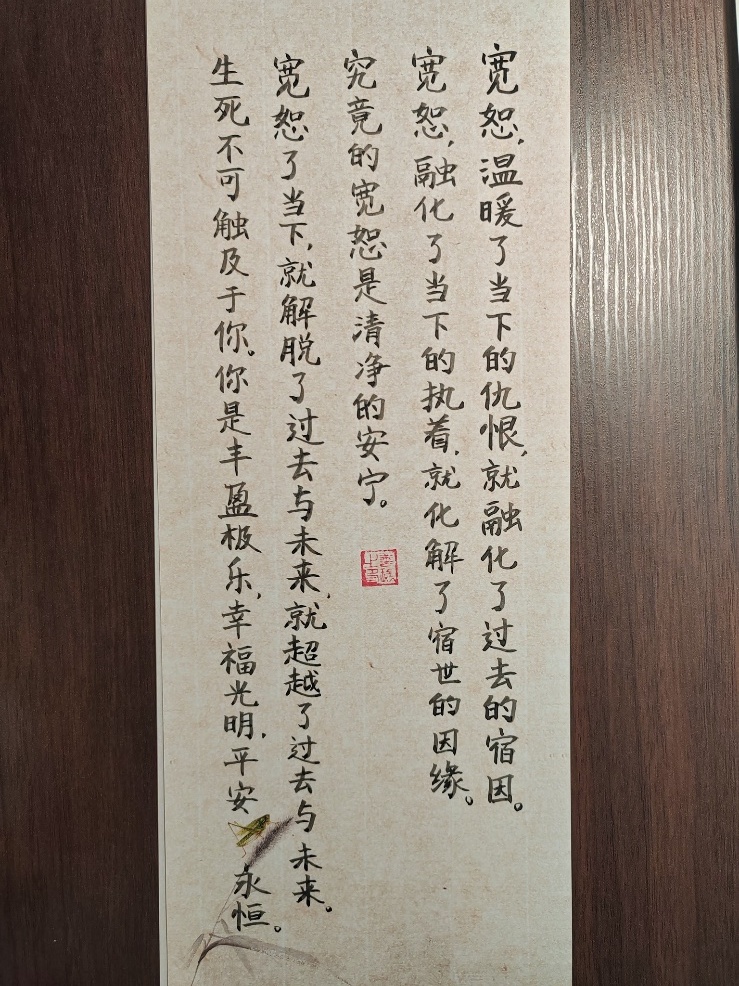 宽恕，温暖了当下的仇恨，就融化了过去的宿因。
宽恕，融化了当下的执着，就化解了宿世的因缘。
究竟的宽恕是清净的安宁。
宽恕了当下，就解脱了过去与未来，就超越了过去与未来。
生死不可触及于你。你是丰盈极乐，幸福光明，平安永恒。